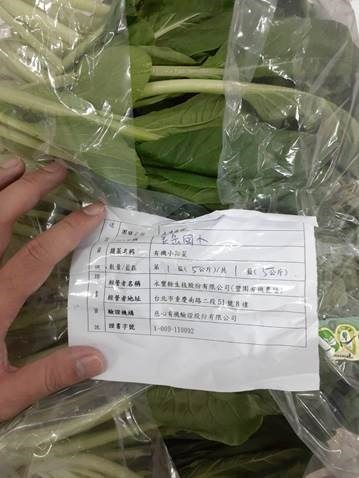 至善國小
蔬菜名稱 有機小松菜
數量/總數 第 1 籃(5公斤)/共 1 籃(5公斤)
經營者名稱 永豐餘生技股份有限公司(豐園有機農場)
經營者地址 台北市重慶南路二段51號8樓
驗證機構 慈心有機驗證股份有限公司
證書字號 1-009-110092